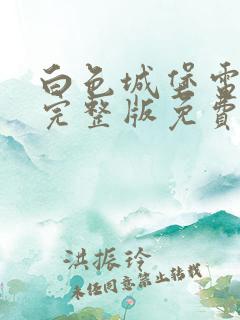 白色城堡雷
完整版免费
洪振玲
未经同意禁止转载